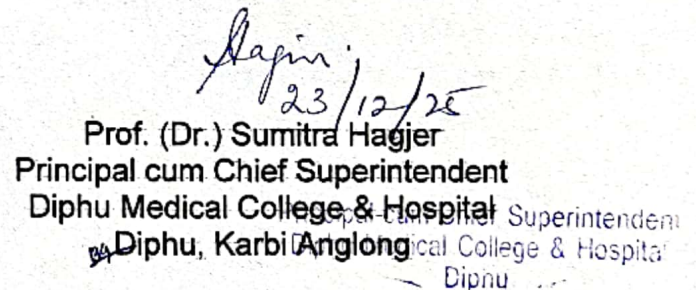 Hagjer
23/12/25
Prof. (Dr.) Sumitra Hagjer
Principal cum Chief Superintendent
Diphu Medical College & Hospital
Diphu, Karbi Anglong
Superintendent
ical College & Hospital
Diphu